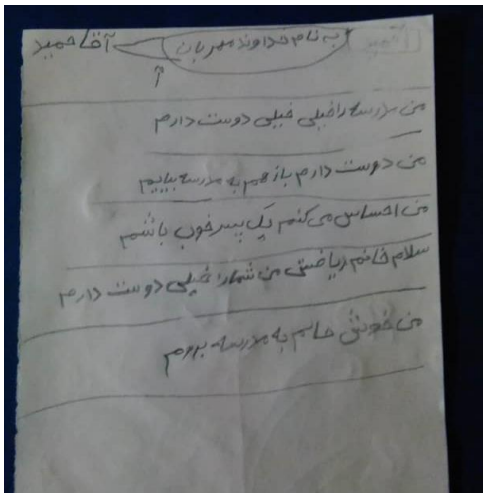 به نام خداوند مهربان آقا حمید
من مدرسه را خیلی خیلی دوست دارم
من دوست دارم باز هم به مدرسه بیایم
من احساس می کنم یک پسر خوب باشم
سلام خانم ریاضتی من شمارا خیلی دوست دارم
من خوش حالم به مدرسه بروم